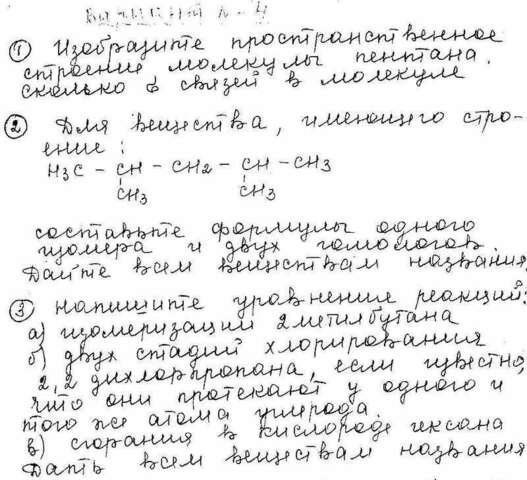 ① Изобразите пространственное
строение молекулы пентана.
сколько б связей в молекуле
② Для вещества, имеющего стро-
ение:
H3C - CH - CH2 - CH - CH3
CH3 CH3
составьте формулы одного
изомера и двух гомологов.
Дайте всем веществам названия
③ напишите уравнение реакций:
а) изомеризации 2метилбутана
б) двух стадий хлорирования
2,2 дихлорпропана, если известно,
что они протекают у одного и
того же атома углерода.
в) сгорания в кислороде гексана
Дать всем веществам названия